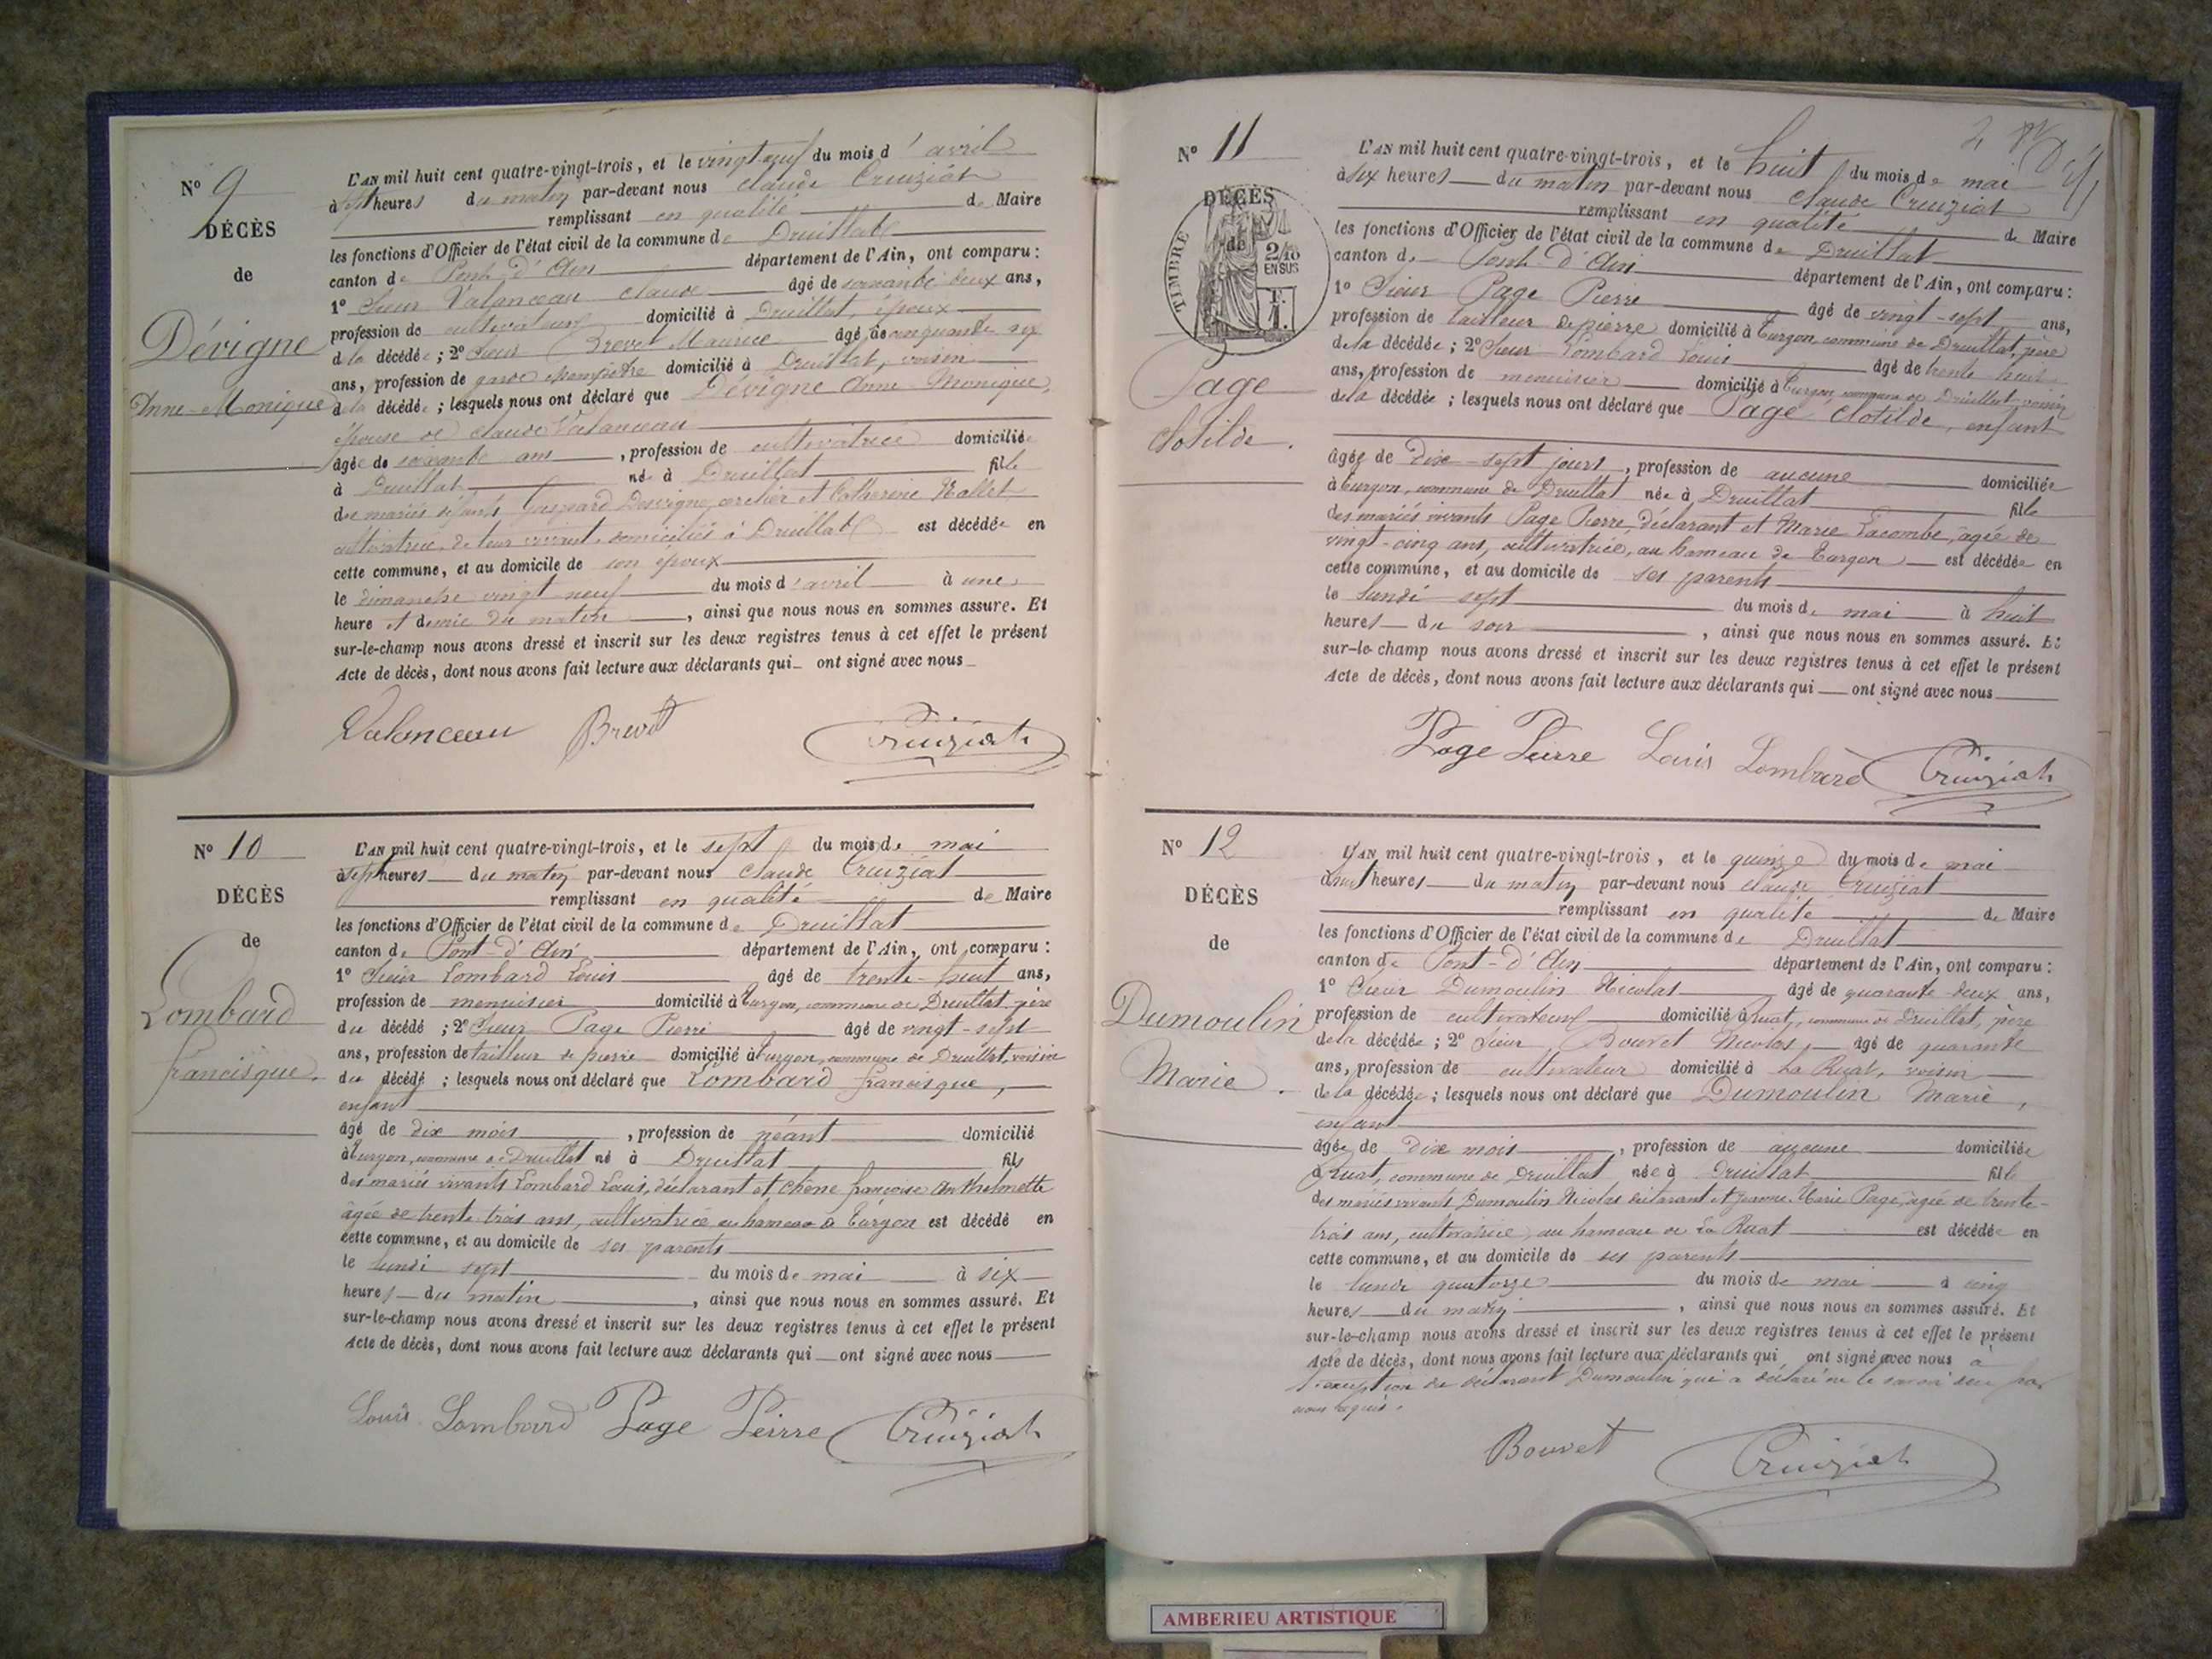 N° 9
DÉCÈS
de
Dévigne
Anne-Monique
L'AN mil huit cent quatre-vingt-trois, et le vingt neuf du mois d'avril
à sept heures du matin par-devant nous Claude Cruiziat
remplissant en qualité de Maire
les fonctions d'Officier de l'état civil de la commune de Druillat
canton de Pont-d'Ain département de l'Ain, ont comparu :
1° Sieur Valanceau Claude âgé de soixante deux ans,
profession de cultivateur domicilié à Druillat, époux
de la décédée ; 2° Sieur Brevet Maurice âgé de cinquante six
ans, profession de garde champêtre domicilié à Druillat, voisin
de la décédée ; lesquels nous ont déclaré que Dévigne Anne-Monique,
épouse de Claude Valanceau
âgée de soixante ans, profession de cultivatrice domiciliée
à Druillat né à Druillat fille
des mariés défunts Gaspard Desvigne, et Catherine Hallet
cultivatrice, de leur vivant, domiciliés à Druillat est décédée en
cette commune, et au domicile de son époux
le dimanche vingt neuf du mois d'avril à une
heure et demie du matin, ainsi que nous nous en sommes assuré. Et
sur-le-champ nous avons dressé et inscrit sur les deux registres tenus à cet effet le présent
Acte de décès, dont nous avons fait lecture aux déclarants qui ont signé avec nous
Valanceau Brevet Cruiziat
N° 10
DÉCÈS
de
Lombard
francisque.
L'AN mil huit cent quatre-vingt-trois, et le sept du mois de mai
à sept heures du matin par-devant nous Claude Cruiziat
remplissant en qualité de Maire
les fonctions d'Officier de l'état civil de la commune de Druillat
canton de Pont-d'Ain département de l'Ain, ont comparu :
1° Sieur Lombard Louis âgé de trente-huit ans,
profession de menuisier domicilié à Turgon, commune de Druillat, père
du décédé ; 2° Sieur Page Pierre âgé de vingt-sept
ans, profession de tailleur de pierre domicilié à Turgon, commune de Druillat, voisin
du décédé ; lesquels nous ont déclaré que Lombard francisque,
enfant
âgé de dix mois, profession de néant domicilié
à Turgon, commune de Druillat né à Druillat fils
des mariés vivants Lombard Louis, déclarant et Chêne françoise Anthelmette
âgée de trente trois ans, cultivatrice au hameau de Turgon est décédé en
cette commune, et au domicile de ses parents
le lundi sept du mois de mai à six
heures du matin, ainsi que nous nous en sommes assuré. Et
sur-le-champ nous avons dressé et inscrit sur les deux registres tenus à cet effet le présent
Acte de décès, dont nous avons fait lecture aux déclarants qui ont signé avec nous
Louis Lombard Page Peirre Cruiziat
N° 11
DÉCÈS
de
TIMBRE
2/10
EN SUS
Page
Clotilde.
L'AN mil huit cent quatre-vingt-trois, et le huit du mois de mai
à six heures du matin par-devant nous Claude Cruiziat
remplissant en qualité de Maire
les fonctions d'Officier de l'état civil de la commune de Druillat
canton de Pont-d'Ain département de l'Ain, ont comparu :
1° Sieur Page Pierre âgé de vingt-sept ans,
profession de tailleur de pierre domicilié à Turgon, commune de Druillat, père
de la décédée ; 2° Sieur Lombard Louis âgé de trente huit
ans, profession de menuisier domicilié à Turgon, commune de Druillat voisin
de la décédée ; lesquels nous ont déclaré que Page Clotilde, enfant
âgée de dix-sept jours, profession de aucune domiciliée
à Turgon, commune de Druillat née à Druillat fille
des mariés vivants Page Pierre, déclarant et Marie Lacombe, agée de
vingt-cinq ans, cultivatrice, au hameau de Turgon est décédée en
cette commune, et au domicile de ses parents
le lundi sept du mois de mai à huit
heures du soir, ainsi que nous nous en sommes assuré. Et
sur-le-champ nous avons dressé et inscrit sur les deux registres tenus à cet effet le présent
Acte de décès, dont nous avons fait lecture aux déclarants qui ont signé avec nous
Page Peirre Louis Lombard Cruiziat
N° 12
DÉCÈS
de
Dumoulin
Marie.
L'AN mil huit cent quatre-vingt-trois, et le quinze du mois de mai
à huit heures du matin par-devant nous Claude Cruiziat
remplissant en qualité de Maire
les fonctions d'Officier de l'état civil de la commune de Druillat
canton de Pont-d'Ain département de l'Ain, ont comparu :
1° Sieur Dumoulin Nicolas âgé de quarante deux ans,
profession de cultivateur domicilié à Ruat, commune de Druillat, père
de la décédée ; 2° Sieur Bouvet Nicolas, âgé de quarante
ans, profession de cultivateur domicilié à La Ruat, voisin
de la décédée ; lesquels nous ont déclaré que Dumoulin Marie,
enfant
âgée de dix mois, profession de aucune domiciliée
à Ruat, commune de Druillat née à Druillat fille
des mariés vivants Dumoulin Nicolas déclarant et Jeanne Marie Page, agée de trente-
trois ans, cultivatrice, au hameau de La Ruat est décédée en
cette commune, et au domicile de ses parents
le lundi quatorze du mois de mai à cinq
heures du matin, ainsi que nous nous en sommes assuré. Et
sur-le-champ nous avons dressé et inscrit sur les deux registres tenus à cet effet le présent
Acte de décès, dont nous avons fait lecture aux déclarants qui ont signé avec nous à
l'exception de déclarant Dumoulin qui a déclaré ne le savoir par
nous requis.
Bouvet Cruiziat
AMBERIEU ARTISTIQUE